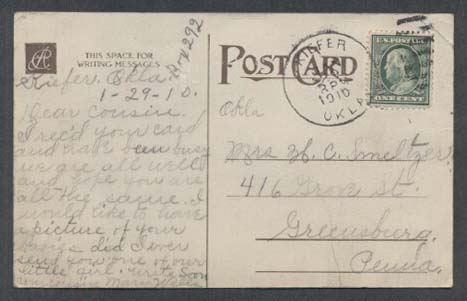 THIS SPACE FOR
WRITING MESSAGES
POST CARD
Kiefer, Okla.
1-29-10.
Dear Cousin.
I rec'd your card
and have been busy
we are all well
and hope you are
all the same. I
would like to have
a picture of your
did I ever
send you one of our
little girl. write soon
your cousin
KIEFER
1910
OKLA
U.S. POSTAGE
ONE CENT
Okla
Mrs H. C. Smeltzer.
416 Grove St.
Greensburg.
Penna.